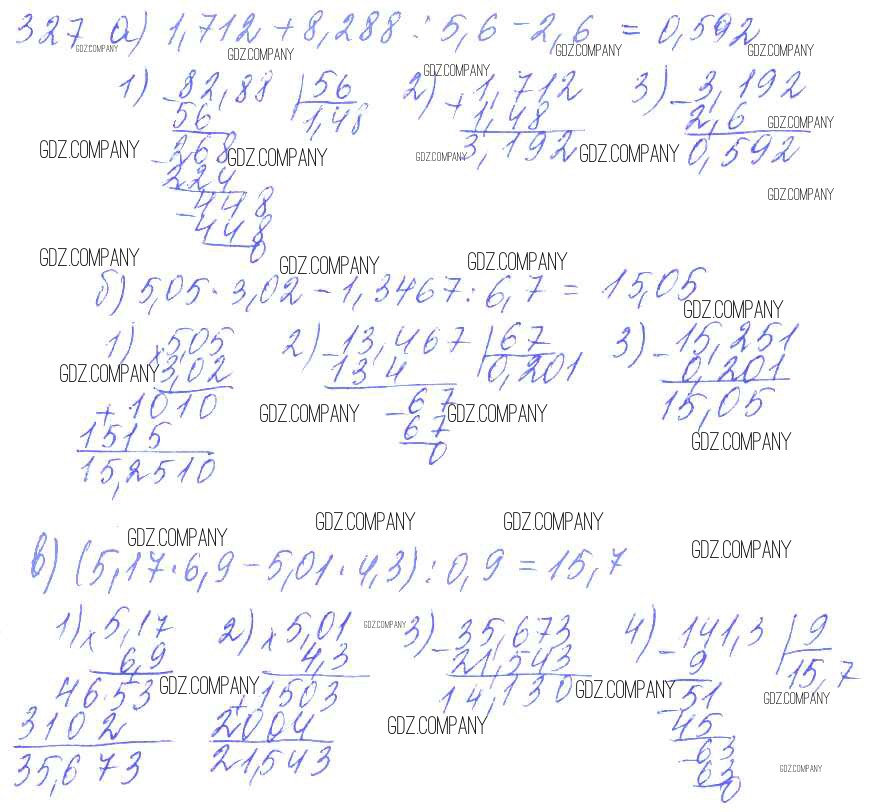 327 а) 1,712 + 8,288 : 5,6 - 2,6 = 0,592
GDZ.COMPANY GDZ.COMPANY GDZ.COMPANY GDZ.COMPANY
1) - 82,88 | 56 2) + 1,712 3) - 3,192
GDZ.COMPANY
56 1,48 1,48 2,6 GDZ.COMPANY
GDZ.COMPANY - 268 GDZ.COMPANY GDZ.COMPANY 3,192 GDZ.COMPANY 0,592
224 GDZ.COMPANY
- 448
448
0
GDZ.COMPANY GDZ.COMPANY GDZ.COMPANY
б) 5,05 · 3,02 - 1,3467 : 6,7 = 15,05
GDZ.COMPANY
1) × 505 2) - 13,467 | 67 3) - 15,251
GDZ.COMPANY 3,02 13 4 0,201 0,201
+ 1010 GDZ.COMPANY - 67 GDZ.COMPANY 15,05
1515 67 GDZ.COMPANY
15,2510 0
GDZ.COMPANY GDZ.COMPANY GDZ.COMPANY GDZ.COMPANY
в) (5,17 · 6,9 - 5,01 · 4,3) : 0,9 = 15,7
1) × 5,17 2) × 5,01 GDZ.COMPANY 3) - 35,673 4) - 141,3 | 9
6,9 4,3 21,543 9 15,7
4653 GDZ.COMPANY + 1503 14,130 GDZ.COMPANY - 51 GDZ.COMPANY
3102 2004 GDZ.COMPANY 45
35,673 21,543 - 63
63 GDZ.COMPANY
0